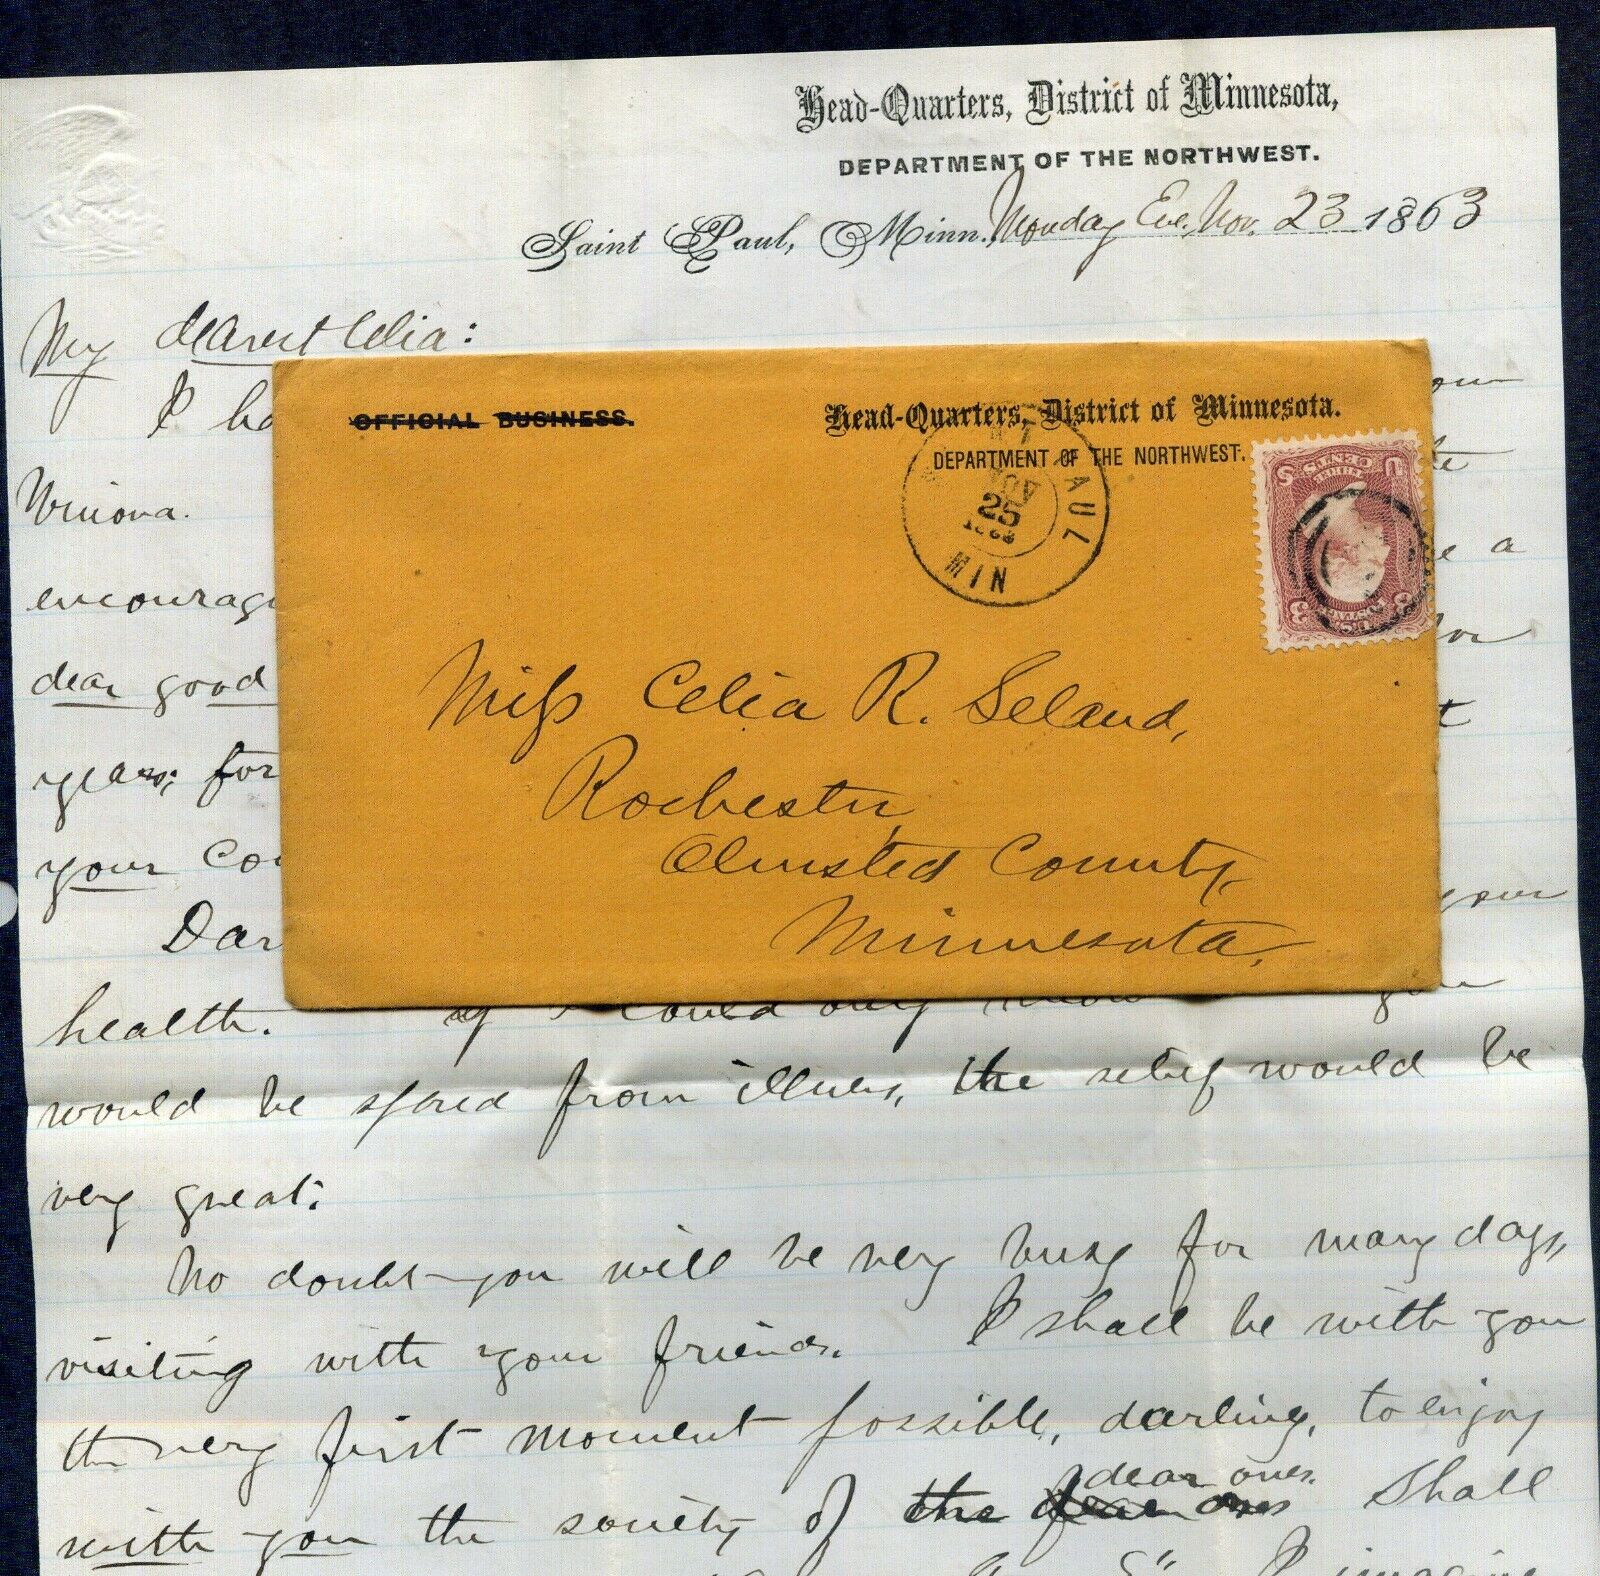 Head-Quarters, District of Minnesota,
DEPARTMENT OF THE NORTHWEST.
Saint Paul, Minn. Monday Eve, Nov. 23 1863
My dearest Celia:
I
Winona.
dear good
years; for
your
health. If I could only know you
would be spared from illness, the relief would be
very great.
No doubt you will be very busy for many days,
visiting with your friends. I shall be with you
the very first moment possible, darling, to enjoy
dear ones.
with you the society of the dear ones Shall
I imagine
your
a
OFFICIAL BUSINESS.
Head-Quarters, District of Minnesota.
DEPARTMENT OF THE NORTHWEST.
PAUL
NOV
25
1863
MIN
U 3 CENTS S
THREE
U.S. POSTAGE
3 3
Miss Celia R. Seland,
Rochester,
Olmsted County,
Minnesota.